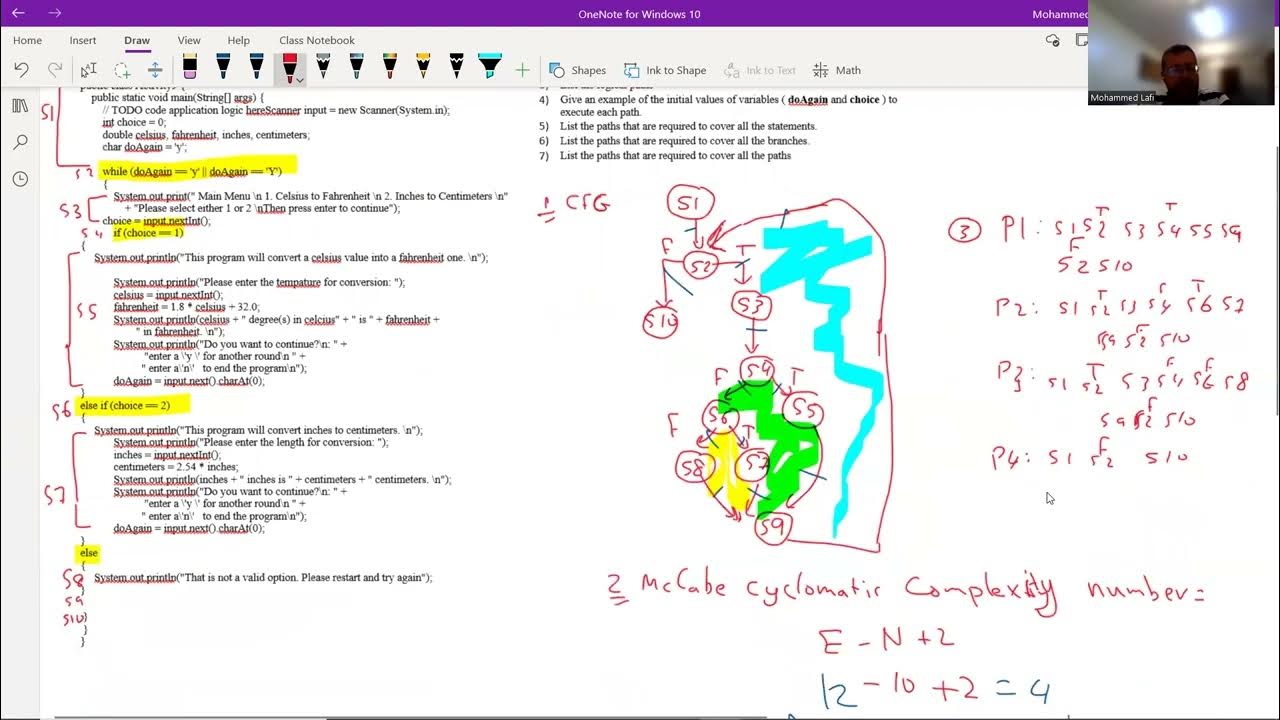 OneNote for Windows 10
Mohammed
Home Insert Draw View Help Class Notebook
Shapes Ink to Shape Ink to Text Math
Mohammed Lafi
S1
public static void main(String[] args) {
// TODO code application logic hereScanner input = new Scanner(System.in);
int choice = 0;
double celsius, fahrenheit, inches, centimeters;
char doAgain = 'y';
S2 while (doAgain == 'y' || doAgain == 'Y')
{
S3 System.out.print(" Main Menu \n 1. Celsius to Fahrenheit \n 2. Inches to Centimeters \n"
+ "Please select either 1 or 2 \nThen press enter to continue");
choice = input.nextInt();
S4 if (choice == 1)
{
System.out.println("This program will convert a celsius value into a fahrenheit one. \n");
System.out.println("Please enter the tempature for conversion: ");
celsius = input.nextInt();
S5 fahrenheit = 1.8 * celsius + 32.0;
System.out.println(celsius + " degree(s) in celcius" + " is " + fahrenheit +
" in fahrenheit. \n");
System.out.println("Do you want to continue?\n: " +
"enter a \'y \' for another round\n " +
" enter a\'n\'  to end the program\n");
doAgain = input.next().charAt(0);
}
S6 else if (choice == 2)
{
System.out.println("This program will convert inches to centimeters. \n");
System.out.println("Please enter the length for conversion: ");
inches = input.nextInt();
centimeters = 2.54 * inches;
S7 System.out.println(inches + " inches is " + centimeters + " centimeters. \n");
System.out.println("Do you want to continue?\n: " +
"enter a \'y \' for another round\n " +
" enter a\'n\'  to end the program\n");
doAgain = input.next().charAt(0);
}
else
{
S8 System.out.println("That is not a valid option. Please restart and try again");
S9 }
S10 }
}
}
4) Give an example of the initial values of variables ( doAgain and choice ) to
execute each path.
5) List the paths that are required to cover all the statements.
6) List the paths that are required to cover all the branches.
7) List the paths that are required to cover all the paths
1 CFG
S1
F S2 T
S10 S3
S4
F T
S6 S5
F T
S8 S7
S9
3 P1: S1 S2 S3 S4 S5 S9
T T
F
S2 S10
T F T
P2: S1 S2 S3 S4 S6 S7
S9 S2 S10
F
T F F
P3: S1 S2 S3 S4 S6 S8
F
S9 S2 S10
F
P4: S1 S2 S10
2 McCabe cyclomatic Complexity number=
E - N + 2
12 - 10 + 2 = 4